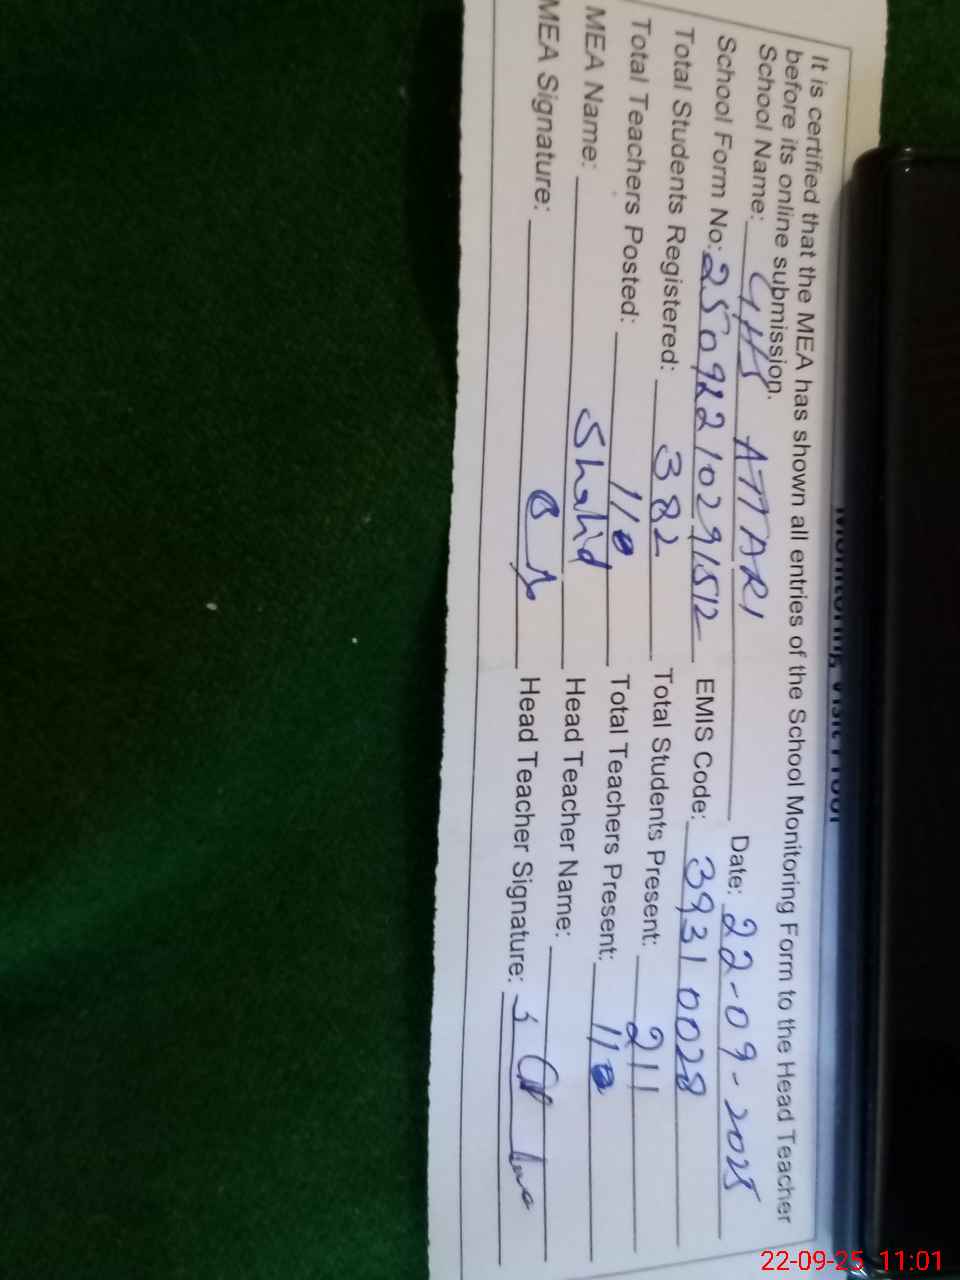 Monitoring Visit Proof
It is certified that the MEA has shown all entries of the School Monitoring Form to the Head Teacher
before its online submission.
School Name: GHS ATTARI Date: 22-09-2025
School Form No: 25092210291512 EMIS Code: 39310028
Total Students Registered: 382 Total Students Present: 211
Total Teachers Posted: 11 Total Teachers Present: 11
MEA Name: Shahid Head Teacher Name:
MEA Signature: Head Teacher Signature:
22-09-25 11:01